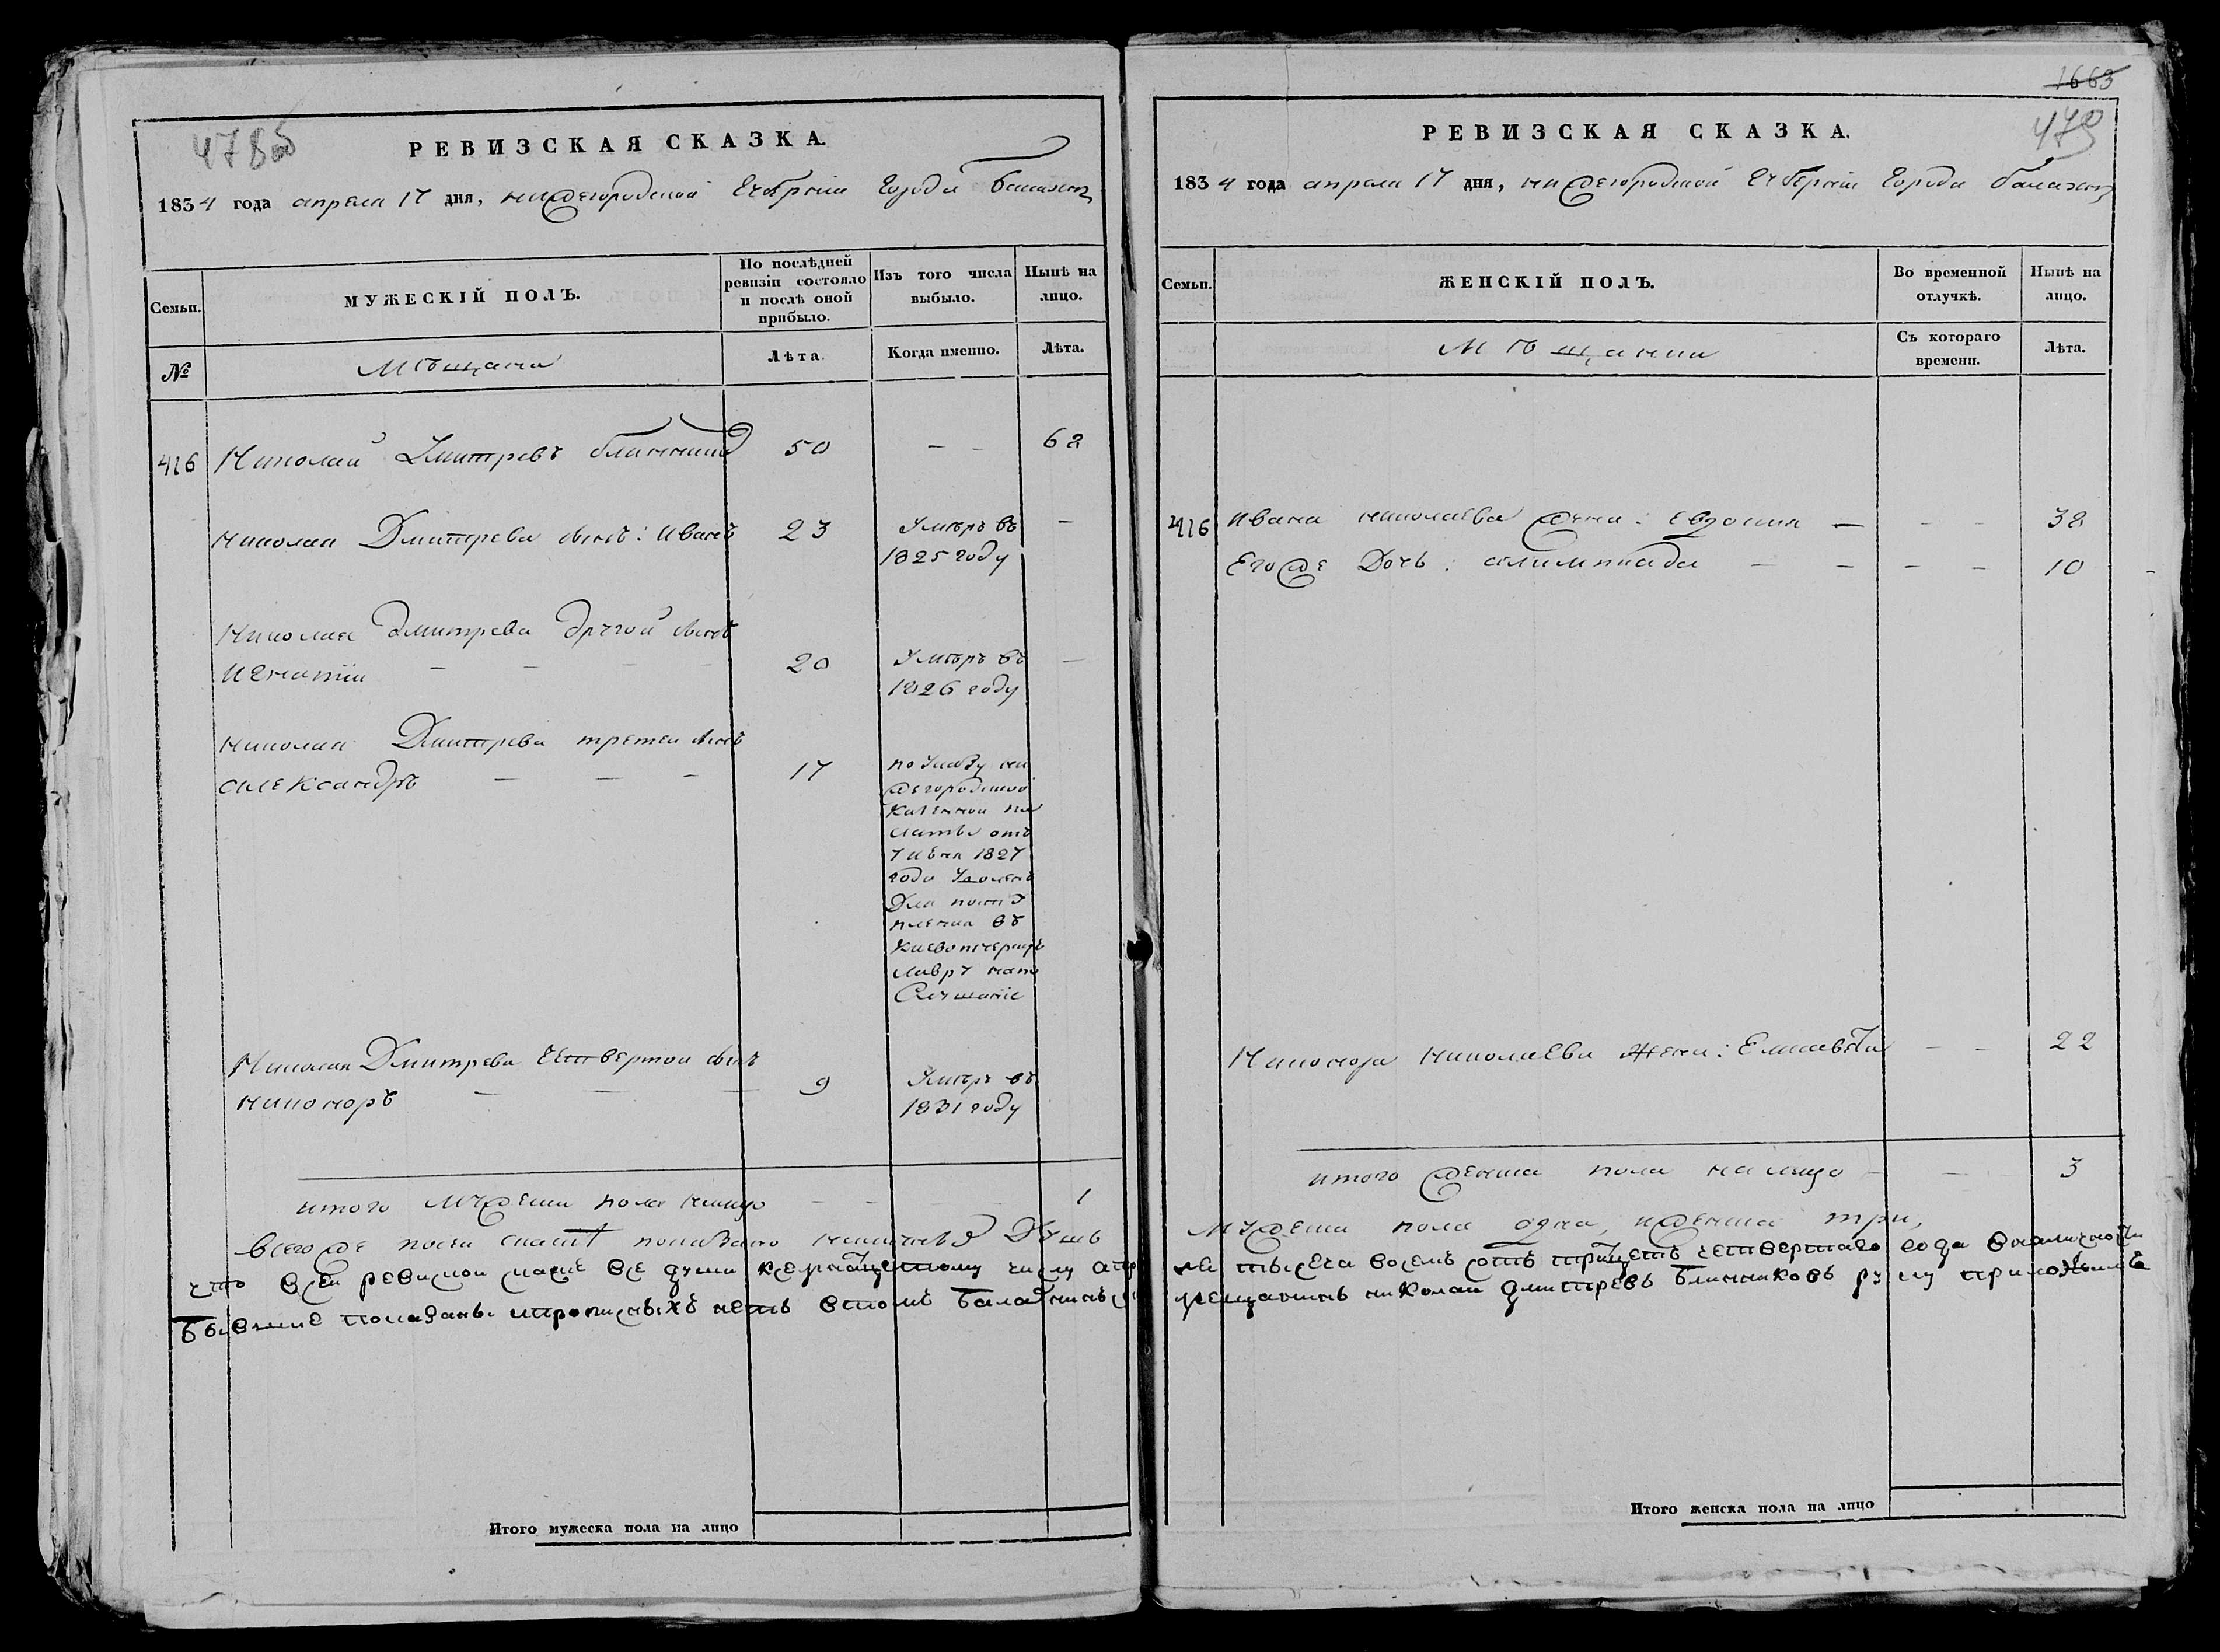 478 об
РЕВИЗСКАЯ СКАЗКА.
1834 года апреля 17 дня, нижегородской Губернии города балахны
Семьи.
МУЖЕСКІЙ ПОЛЪ.
По послѣдней ревизіи состояло и послѣ оной прибыло.
Изъ того числа выбыло.
Нынѣ на лицо.
№
мѣщана
Лѣта.
Когда именно.
Лѣта.
416 Николай Дмитревъ блинниковъ 50 — - 62
николая Дмитрева сынъ: Иванъ 23 Умѣръ въ —
1825 году
Николая дмитрева другой сынъ
игнатiи — — — — 20 Умѣръ въ —
1826 году
николая Дмитрева третеи сынъ
александръ — — - 17 по Указу ни
жегородской
казенной па
латы отъ
7 июня 1827
года Уволенъ
Для поступ
пления въ
Киевопечерскую
лавру напо
слушание
Николая Дмитрева Четвертои сынъ
никоноръ — — — 9 Умѣръ въ
1831 году
итого мужеска пола налицо — - 1
всегоже посеи сказке показано наличныхъ Душъ
что всей ревиской скаске все души ксемнатцетому числу апре
бывшие показаны ипрописныхъ нетъ втомъ балахнинъск
Итого мужеска пола на лицо
1663
479
РЕВИЗСКАЯ СКАЗКА.
1834 года апреля 17 дня, нижегородской Губернии города балахны
Семьи.
ЖЕНСКІЙ ПОЛЪ.
Во временной отлучкѣ.
Нынѣ на лицо.
мѣщанки
Съ котораго времени.
Лѣта.
416 Ивана николаева жена: евдокия — - - 38
Егоже Дочь: алимпиада — - - — 10
Никонора николаева жена: Елисавета — - 22
итого женска пола налицо — — 3
мужеска пола одна, иженска три,
ля тысеча восемь сотъ трицеть четвертаго года вналичности
мещанинъ николаи дмитревъ блинниковъ руку приложилъ
Итого женска пола на лицо